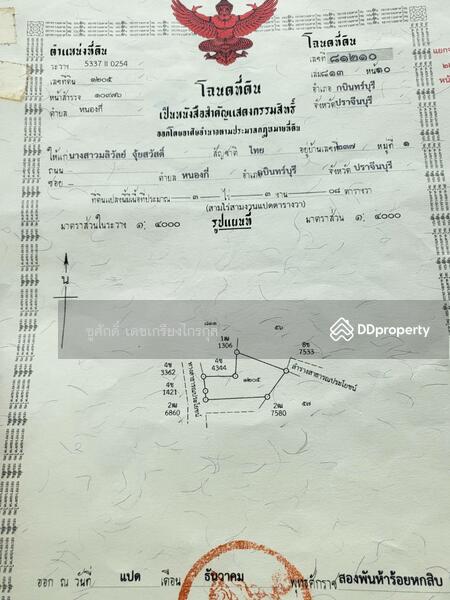 ตำแหน่งที่ดิน
ระวาง 5337 II 0254
เลขที่ดิน ๑๒๐๕
หน้าสำรวจ ๑๐๙๗๖
ตำบล หนองกี่
โฉนดที่ดิน
เลขที่ ๘๑๒๑๐
เล่ม ๘๑๓ หน้า ๑๐
อำเภอ กบินทร์บุรี
จังหวัด ปราจีนบุรี
แยกจ
โฉนดที่ดิน
เป็นหนังสือสำคัญแสดงกรรมสิทธิ์
ออกโดยอาศัยอำนาจตามประมวลกฎหมายที่ดิน
ให้แก่ นางสาวมลิวัลย์ จุ้ยสวัสดิ์ สัญชาติ ไทย อยู่บ้านเลขที่ ๒๓๗ หมู่ที่ ๑
ถนน
ซอย - ตำบล หนองกี่ อำเภอ กบินทร์บุรี จังหวัด ปราจีนบุรี
ที่ดินแปลงนี้มีเนื้อที่ประมาณ ๓ ไร่ ๓ งาน ๐๘ ตารางวา
(สามไร่สามงานแปดตารางวา)
มาตราส่วนในระวาง ๑: ๔๐๐๐ รูปแผนที่ มาตราส่วน ๑: ๔๐๐๐
น
ชูศักดิ์ เดชเกรียงไกรกุล
DDproperty
๘๑๑
๕๖
1ฒ
1306
8ช
7533
4ช
3362
4ช
4344
ลำรางสาธารณประโยชน์
๑๒๐๕
4ช
1421
ทางสาธารณประโยชน์
2ฒ
6860
2ฒ
7580
๕๗
ออก ณ วันที่ แปด เดือน ธันวาคม พุทธศักราช สองพันห้าร้อยหกสิบ